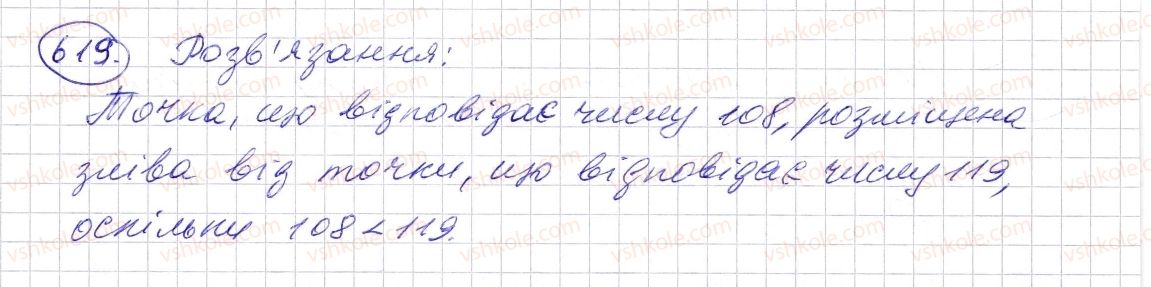 619. Розв'язання:
Точка, що відповідає числу 108, розміщена
зліва від точки, що відповідає числу 119,
оскільки 108 < 119.